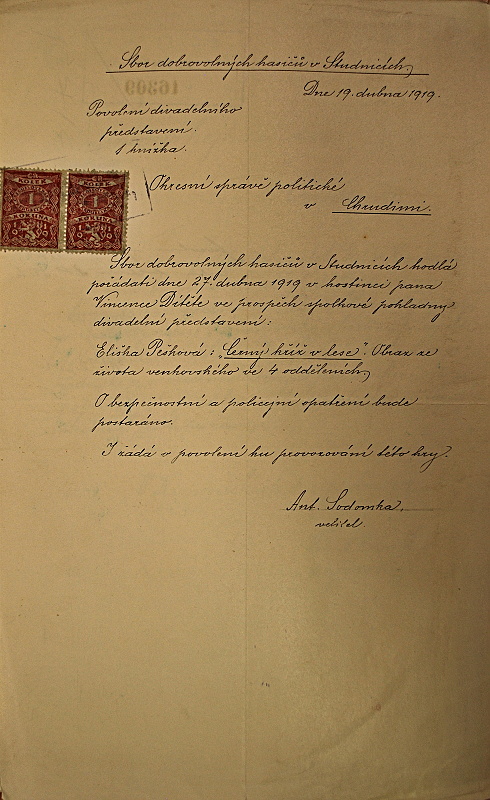 Sbor dobrovolných hasičů v Studnicích,
Dne 19. dubna 1919.
Povolení divadelního
představení.
1 knížka.
KOLEK
1
KORUNA
KOLEK
1
KORUNA
Okresní správě politické
v Chrudimi.
Sbor dobrovolných hasičů v Studnicích hodlá
pořádati dne 27. dubna 1919 v hostinci pana
Vincence Dítěte ve prospěch spolkové pokladny
divadelní představení:
Eliška Pešková: "Černý kříž v lese". Obraz ze
života venkovského ve 4 odděleních,
O bezpečnostní a policejní opatření bude
postaráno.
I žádá o povolení ku provozování této hry.
Ant. Sodomka,
velitel.